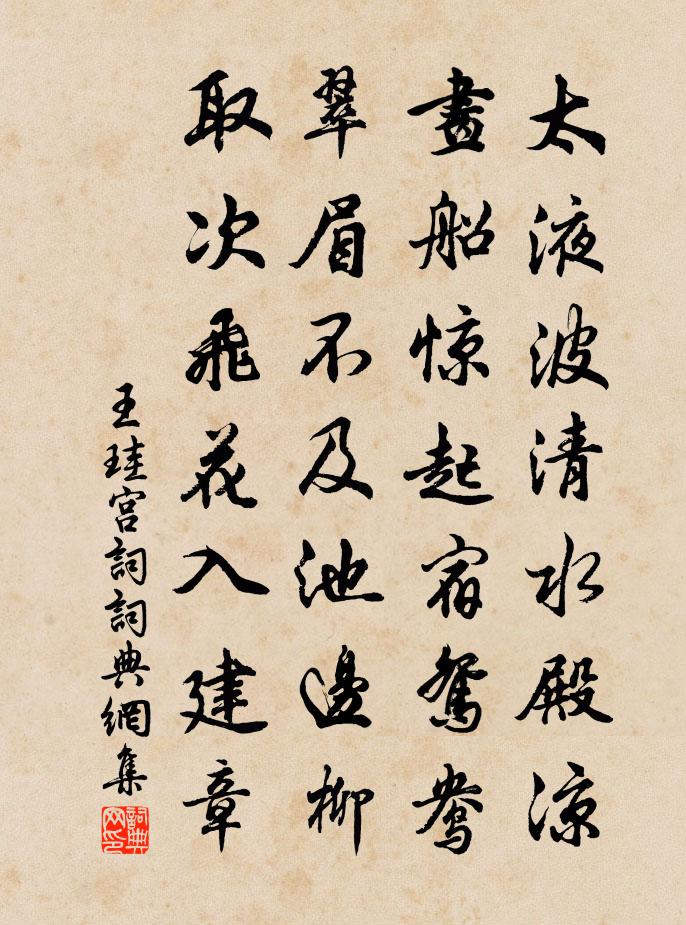 太液波清水殿涼
畫船惊起宿鴛鴦
翠眉不及池邊柳
取次飛花入建章
王珪宮詞詞典網集
詞典网印